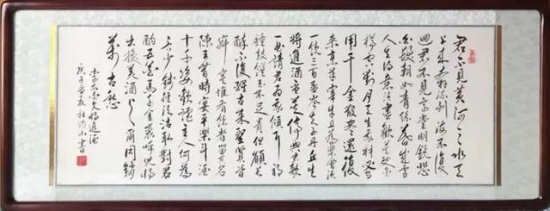 君不見黃河之水天
上来奔流到海不復
回君不見高堂明鏡悲
白髮朝如青絲暮成雪
人生得意須盡歡莫使金
樽空對月天生我材必有
用千金散盡還復
来烹羊宰牛且為樂會須
一飲三百杯岑夫子丹丘生
將進酒莫停與君歌
一曲請君為我傾耳聽
鐘鼓饌玉不足貴但願長
醉不復醒古来聖賢皆
寂寞惟有飲者留其名
陳王昔時宴平樂斗酒
十千恣歡謔主人何為
言少錢徑須沽取對君
酌五花馬千金裘呼兒將
出換美酒与爾同銷
萬古愁
李太白將進酒
庚子書